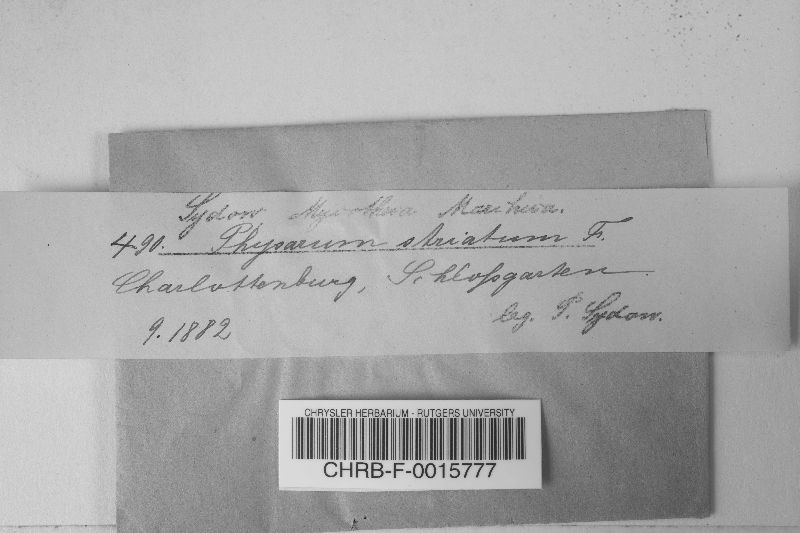 Sydow, Mycotheca Marchica.
490. Physarum striatum F.
Charlottenburg, Schloßgarten.
leg. P. Sydow.
9. 1882
CHRYSLER HERBARIUM - RUTGERS UNIVERSITY
CHRB-F-0015777